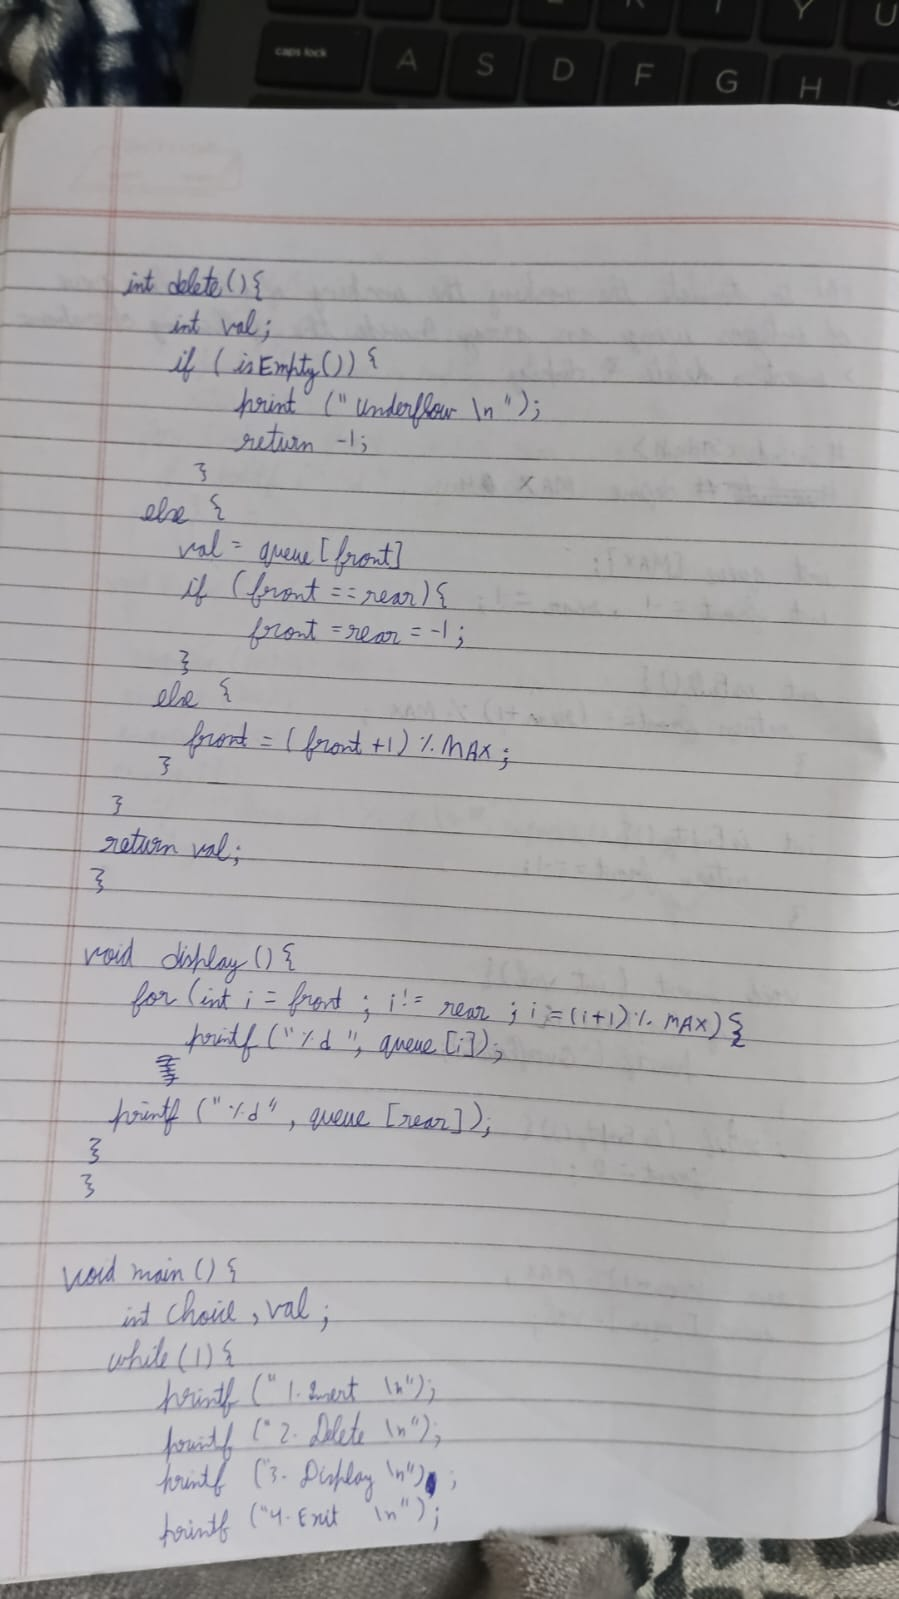 caps lock
A S D F G H
Y U
int delete(){
int val;
if (isEmpty()) {
print ("Underflow \n");
return -1;
}
else {
val = queue[front]
if (front == rear){
front = rear = -1;
}
else {
front = (front +1) % MAX;
}
}
return val;
}
void display(){
for (int i = front ; i != rear ; i = (i+1) % MAX) {
printf ("%d ", queue [i]);
printf ("%d", queue [rear]);
}
}
void main () {
int choice, val;
while (1) {
printf (" 1. Insert \n");
printf (" 2. Delete \n");
printf ("3. Display \n");
printf ("4. Exit \n");